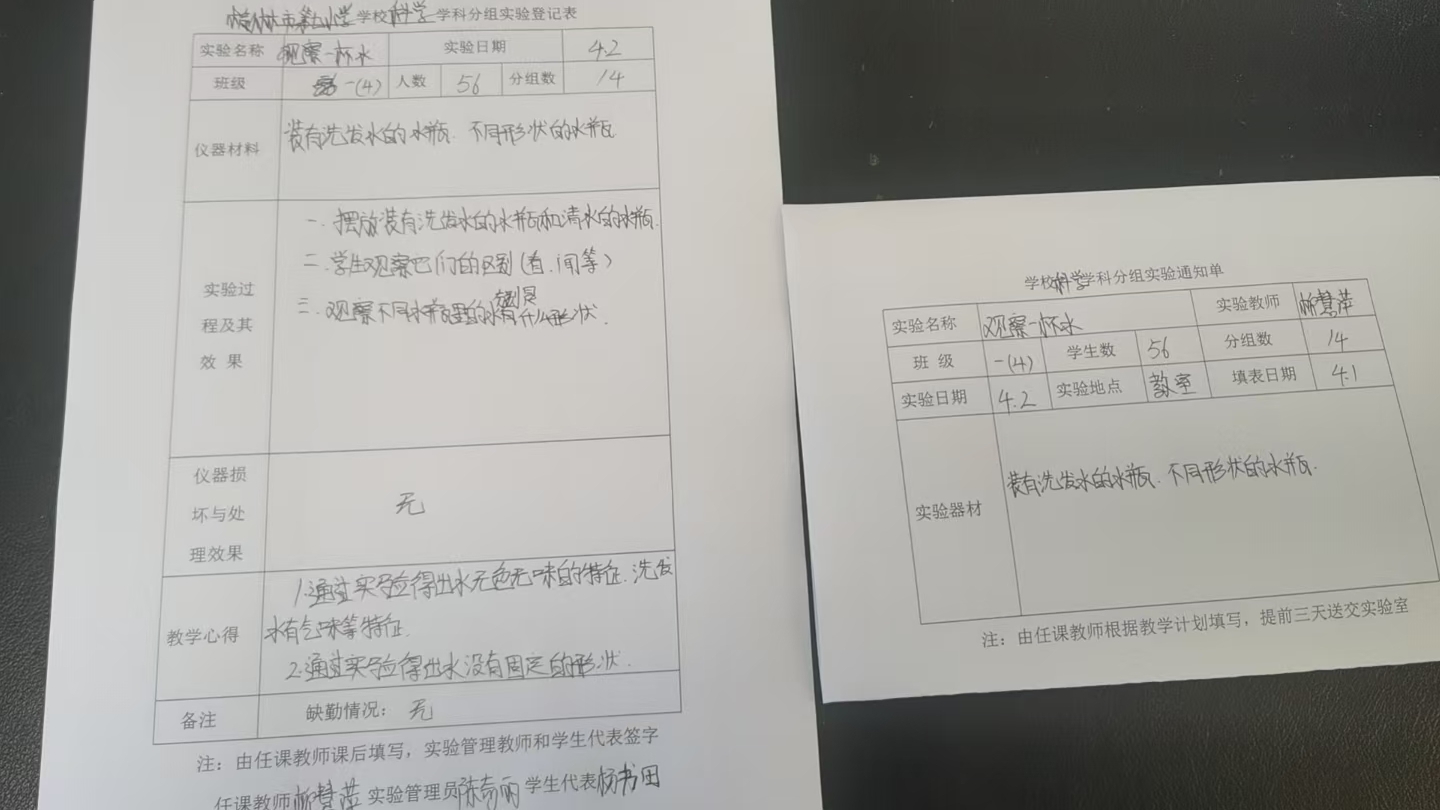 榆林市第九小学学校科学学科分组实验登记表
实验名称 观察一杯水 实验日期 4.2
班级 一(4) 人数 56 分组数 14
仪器材料 装有洗发水的水瓶、不同形状的水瓶
一、摆放装有洗发水的水瓶和清水的水瓶.
二、学生观察它们的区别(看、闻等)
三、观察不同水瓶里的水有什么形状.
实验过
程及其
效 果
仪器损
坏与处
理效果
无
教学心得
1.通过实验得出水无色无味的特征.洗发
水有气味等特征.
2.通过实验得出水没有固定的形状.
备注 缺勤情况: 无
注:由任课教师课后填写,实验管理教师和学生代表签字
任课教师 实验管理员 学生代表杨书田
学校科学学科分组实验通知单
实验名称 观察一杯水 实验教师
班 级 一(4) 学生数 56 分组数 14
实验日期 4.2 实验地点 教室 填表日期 4.1
实验器材 装有洗发水的水瓶、不同形状的水瓶.
注:由任课教师根据教学计划填写,提前三天送交实验室